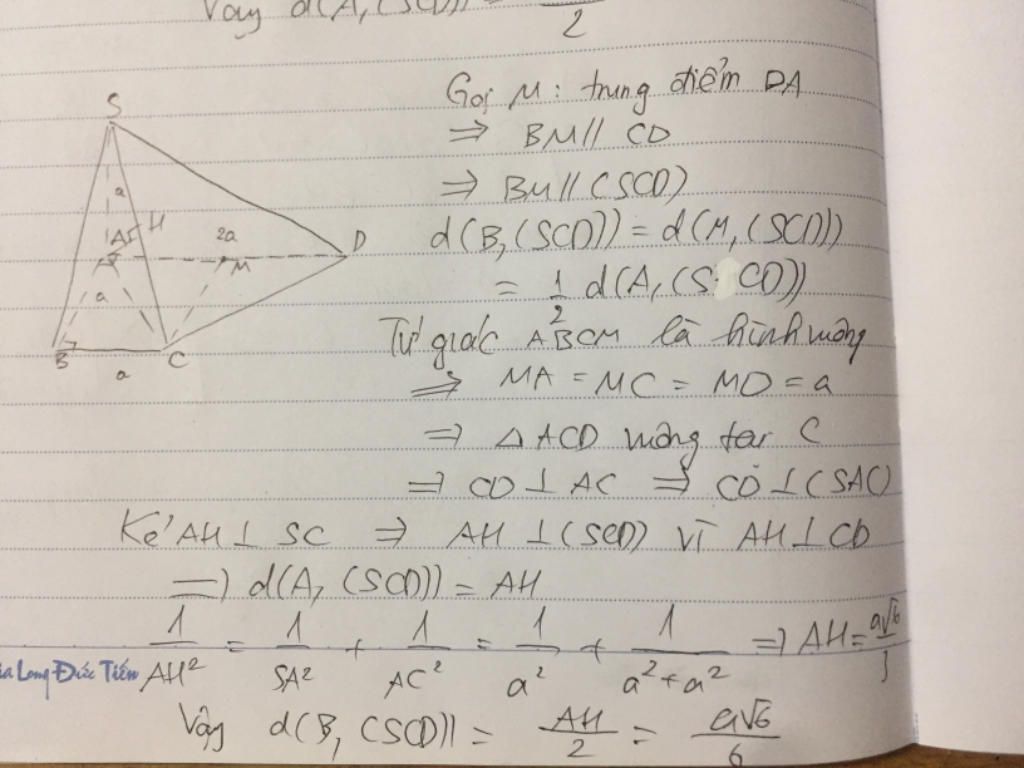 Vậy d(A, (SCD)) =
2
S
a
H
A
2a
M
D
a
B
C
a
Gọi M: trung điểm DA
⇒ BM // CD
⇒ BM // (SCD)
d(B, (SCD)) = d(M, (SCD))
= 1/2 d(A, (SCD))
Tứ giác ABCM là hình vuông
⇒ MA = MC = MD = a
⇒ △ ACD vuông tại C
⇒ CD ⊥ AC ⇒ CD ⊥ (SAC)
Kẻ AH ⊥ SC ⇒ AH ⊥ (SCD) vì AH ⊥ CD
⇒ d(A, (SCD)) = AH
1/AH² = 1/SA² + 1/AC² = 1/a² + 1/(a² + a²) ⇒ AH = a√6/3
Long Đức Tiến
Vậy d(B, (SCD)) = AH/2 = a√6/6